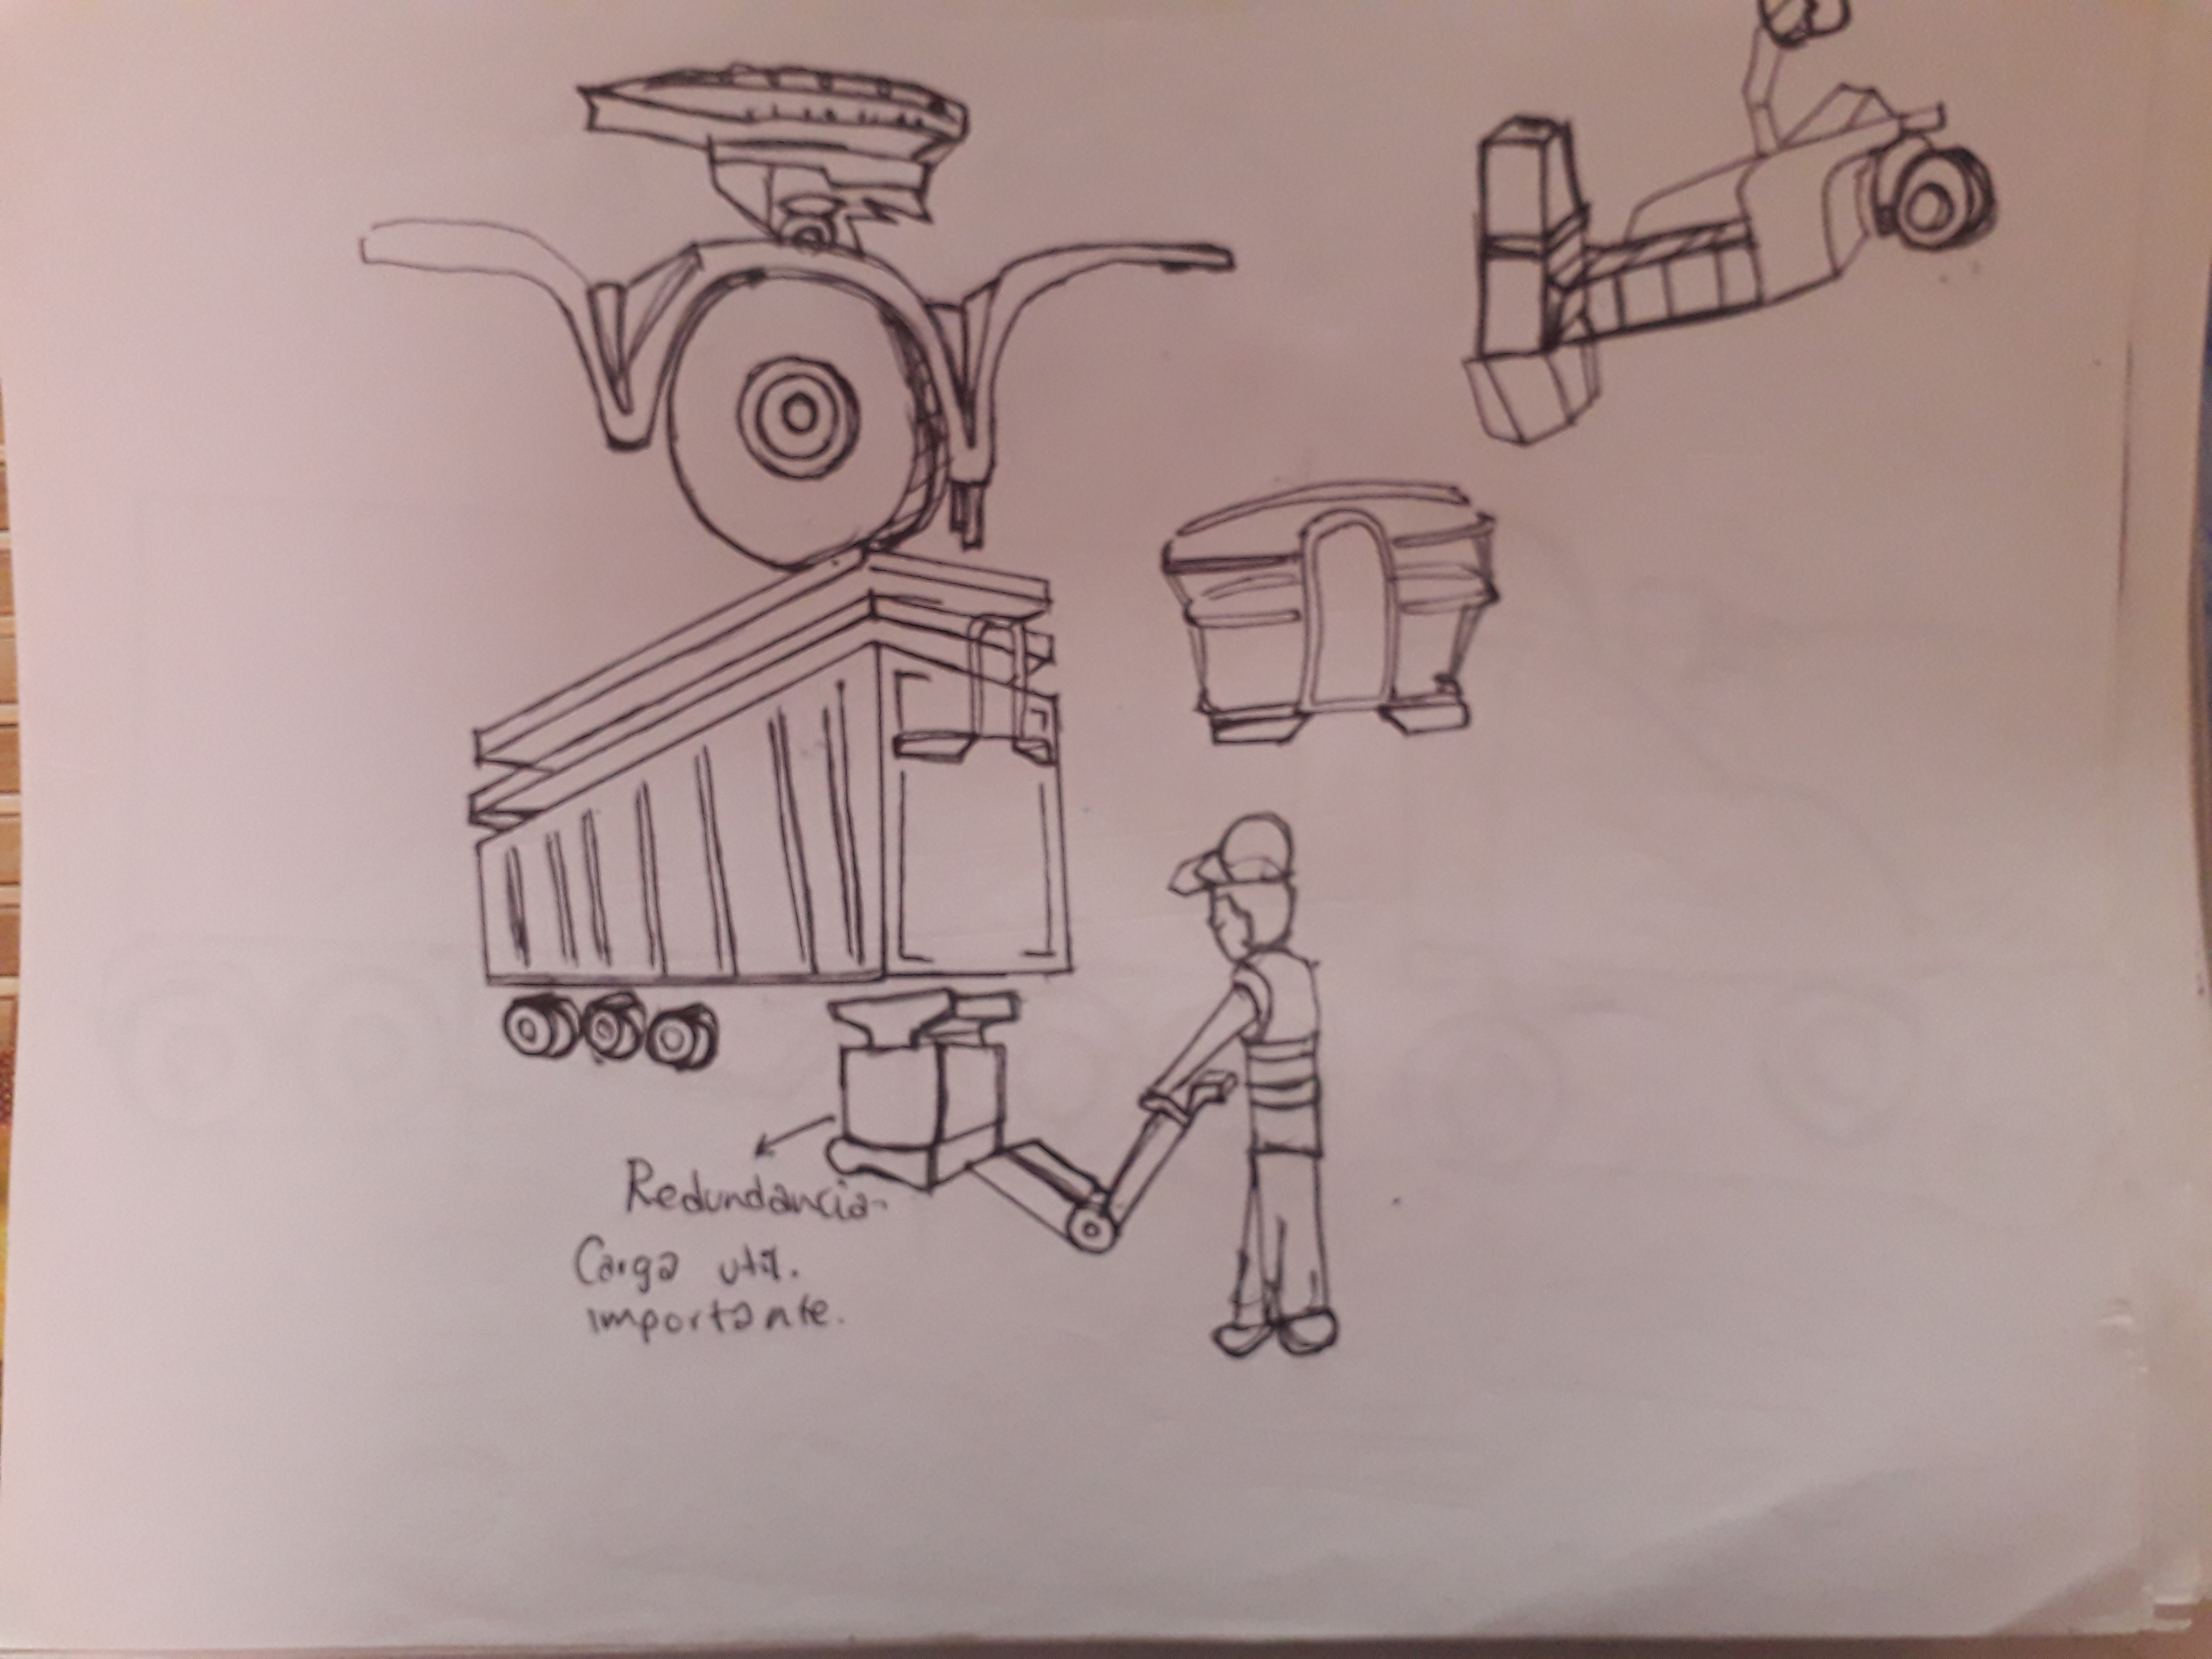 Redundancia-
Carga util.
importante.